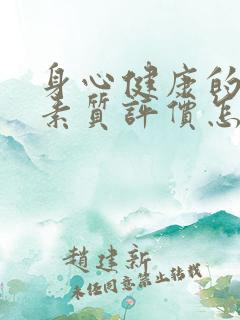 身心健康的
素质評價怎
趙建新
未经同意禁止转载